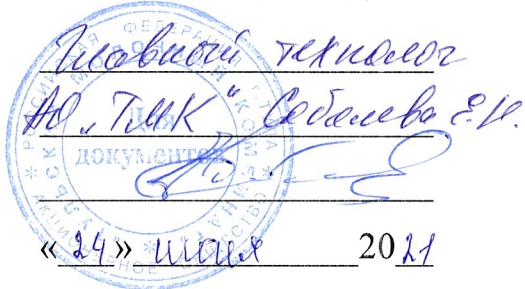 Главный технолог
АО „ТМК“ Соболева Е.Н.
Для
документов
«24» июня 2021